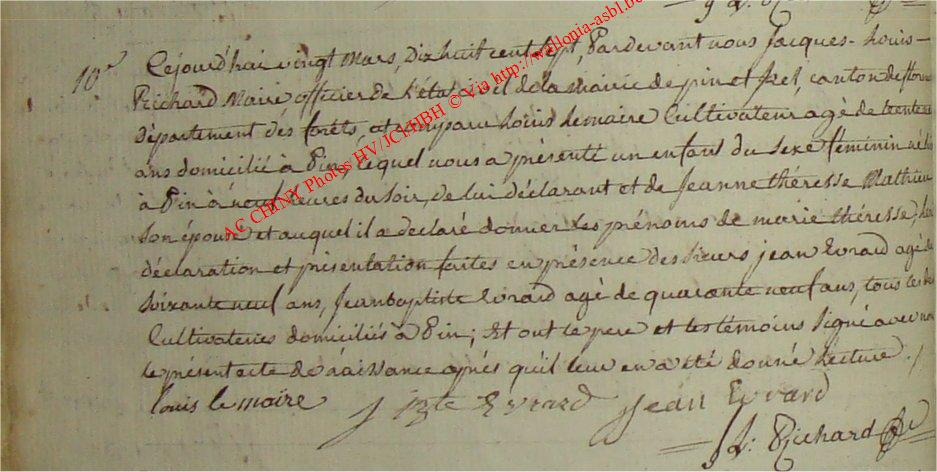 10e
Cejourd'hui vingt Mars, dix huit cent sept, Pardevant nous Jacques-Louis-
Richard Maire officier de l'état civil de la Mairie de pin et Izel, canton de
département des forêts, est comparu Louis Lemaire Cultivateur agé de trente
ans domicilié à Pin, lequel nous a présenté un enfant du sexe féminin né
à Pin à neuf heures du soir, de lui déclarant et de Jeanne théresse Mathieu
son épouse et auquel il a declaré donner les prénoms de marie théresse,
déclaration et présentation faites en présence des sieurs jean Evrard agé de
soixante neuf ans, Jean baptiste Evrard agé de quarante neuf ans, tous les deux
Cultivateurs domiciliés à Pin; Et ont le pere et les témoins signé avec nous
le présent acte de naissance aprés qu'il leur en a été donné lecture./
louis le maire J Bte Evrard Jean Evrard
J: L: Richard
AC CHINY Photos HV/JCH/IHBH © Via http://wallonia-asbl.be